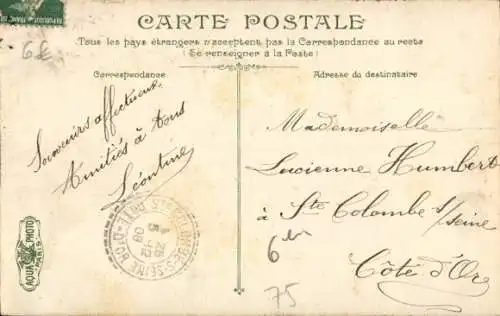 CARTE POSTALE
Tous les pays étrangers n'acceptent pas la Correspondance au recto
(Se renseigner à la Poste)
Correspondance
Adresse du destinataire
6€
Souvenirs affectueux
Amitiés à tous
Léontine
Mademoiselle
Lucienne Humbert
à Ste Colombe s/seine
Côte d'Or
6
75
AQUA PHOTO
PARIS